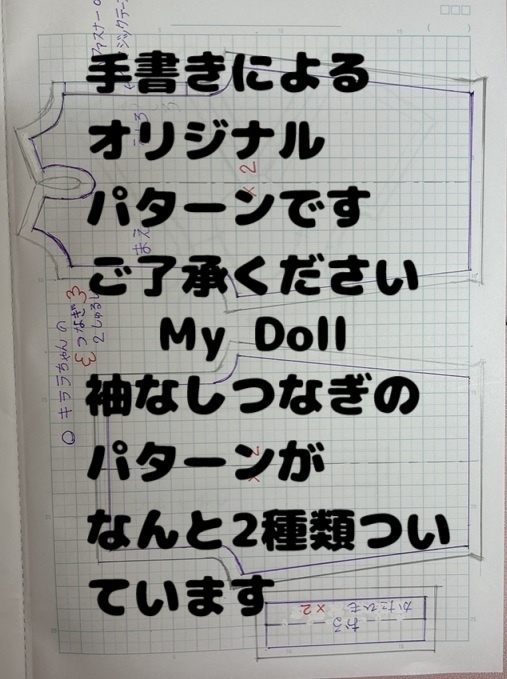 手書きによる
オリジナル
パターンです
ご了承ください
My Doll
袖なしつなぎの
パターンが
なんと2種類つい
ています
○ キララちゃんの
つなぎ
2しゅるい
まえ
×2
×2
かたひも ×2